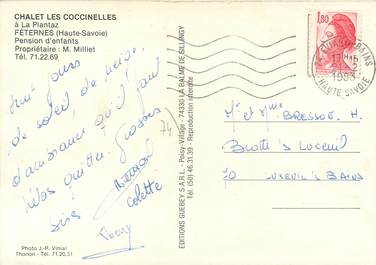 CHALET LES COCCINELLES
à La Plantaz
FÉTERNES (Haute-Savoie)
Pension d'enfants
Propriétaire : M. Milliet
Tél. 71.22.69
Huit jours
de soleil, de neige,
d'ambiance qu'il faut
hélas quitter. Grosses
bises
Colette
Thierry
Photo J.-P. Viniai
Thonon - Tél. 71.20.51
74
EDITIONS GUEBEY S.A.R.L. - Poisy-Village - 74330 LA BALME DE SILLINGY
Tél. (50) 46.31.39 - Reproduction interdite
1,80
BAINS
1983
HAUTE SAVOIE
Mr et Mme BRESSON H.
Brotte's Luxeuil
70 LUXEUIL'S BAINS